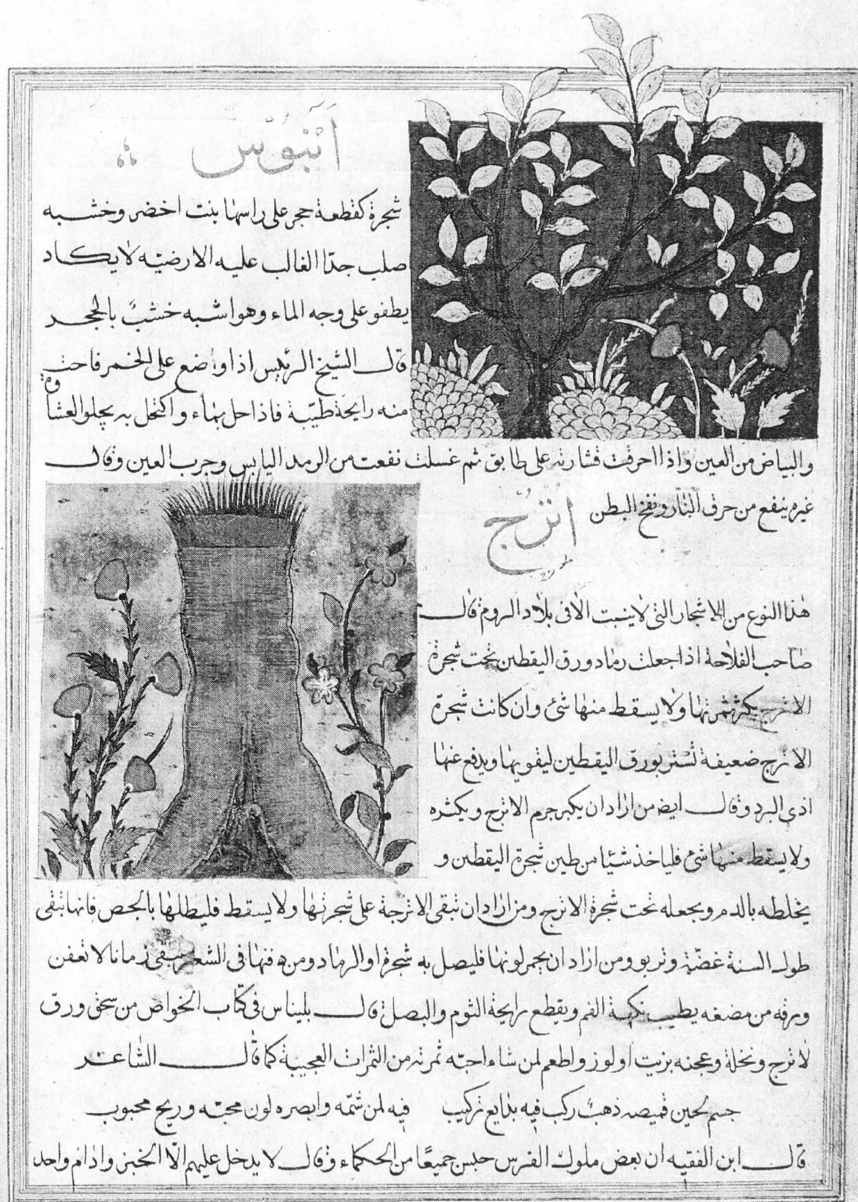 آبنوس
شجرة كقطعة حجر على راسها بنت اخضر وخشبه
صلب جدّا الغالب عليه الارضيّه لا يكاد
يطفو على وجه الماء وهو اشبه خشب بالحجر
قال الشيخ الرئيس اذا وضع على الخمر فاحت
منه رايحة طيّبة فاذا حل بماء واكتحل به يجلو العشاوة
والبياض من العين واذا احرقت فشارته على طابق ثم غسلت نفعت من الرمد اليابس وجرب العين وقال
غيره ينفع من حرق النار ونفخ البطن
اترج
هذا النوع من الاشجار التى لا ينبت الا فى بلاد الروم قال
صاحب الفلاحة اذا جعلت رماد ورق اليقطين تحت شجرة
الاترج يكثر ثمرتها ولا يسقط منها شئ وان كانت شجرة
الاترج ضعيفة تستر بورق اليقطين ليقويها ويدفع عنها
اذى البرد وقال ايض من اراد ان يكبر جرم الاترج ويكثره
ولا يسقط منها شئ فلياخذ شيًا من طين شجرة اليقطين و
يخلطه بالدم ويجعله تحت شجرة الاترج ومن اراد ان تبقى الاترجة على شجرتها ولا يسقط فليطلها بالجص فانها تبقى
طول السنة غضّة وتربو ومن اراد ان يحمر لونها فليصل به شجرة او الرماد ومن دفنها فى الشعير تبقى زمانا لا تعفن
ورقه من مضغه يطيب نكهة الفم ويقطع رايحة الثوم والبصل قال بليناس فى كتاب الخواص من سحق ورق
لاترج ونخلة وعجنه بزيت او لوز واطعم لمن شاء احبّه ثمرته من الثمرات العجيبة كما قال الشاعر
جسم لجين قميصه ذهب ركب فيه بدايع تركيب فيه لمن شمّه وابصره لون محبّه وريح محبوب
قال ابن الفقيه ان بعض ملوك الفرس حبس جميعًا من الحكماء وقال لا يدخل عليهم الّا الخبز وادام واحد